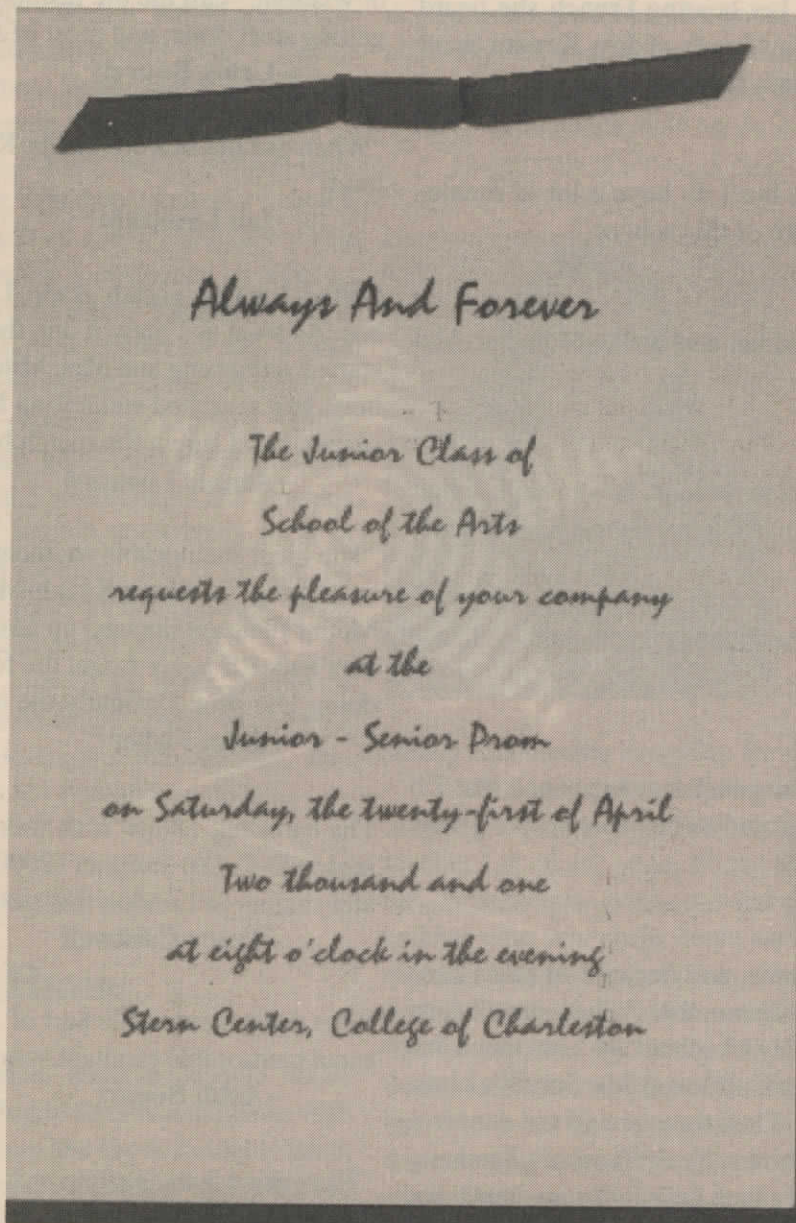 Always And Forever
The Junior Class of
School of the Arts
requests the pleasure of your company
at the
Junior - Senior Prom
on Saturday, the twenty-first of April
Two thousand and one
at eight o'clock in the evening
Stern Center, College of Charleston